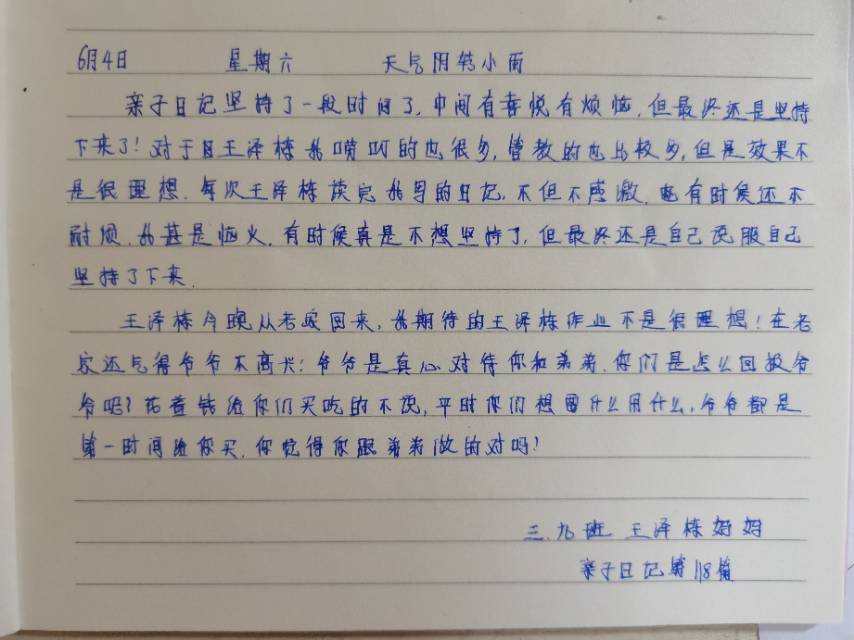 6月4日 星期六 天气阴转小雨
亲子日记坚持了一段时间了,中间有喜悦有烦恼,但最终还是坚持
下来了!对于目王泽栋我唠叨的也很多,管教的也比较多,但是效果不
是很理想.每次王泽栋读完我写的日记,不但不感激,还有时候还不
耐烦.我甚是恼火,有时候真是不想坚持了,但最终还是自己说服自己
坚持了下来.
王泽栋今晚从老家回来,我期待的王泽栋作业不是很理想!在老
家还气得爷爷不高兴:爷爷是真心对待你和弟弟,你们是怎么回报爷
爷呢?花着钱给你们买吃的不说,平时你们想要什么用什么,爷爷都是
第一时间给你买,你觉得你跟弟弟做的对吗?
三.九班 王泽栋妈妈
亲子日记第118篇